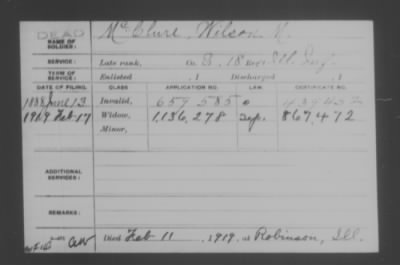 DEAD
NAME OF SOLDIER: McClure, Wilson
SERVICE: Late rank, Co. B, 18 Reg't Ill. Inf.
TERM OF SERVICE: Enlisted , 1 Discharged , 1
DATE OF FILING. CLASS APPLICATION NO. LAW. CERTIFICATE NO.
1888 June 13 Invalid, 659 585
1919 Feb 17 Widow, 1,136,278 867,472
Minor,
ADDITIONAL SERVICES:
REMARKS:
Died Feb 11, 1919, at Robinson, Ill.